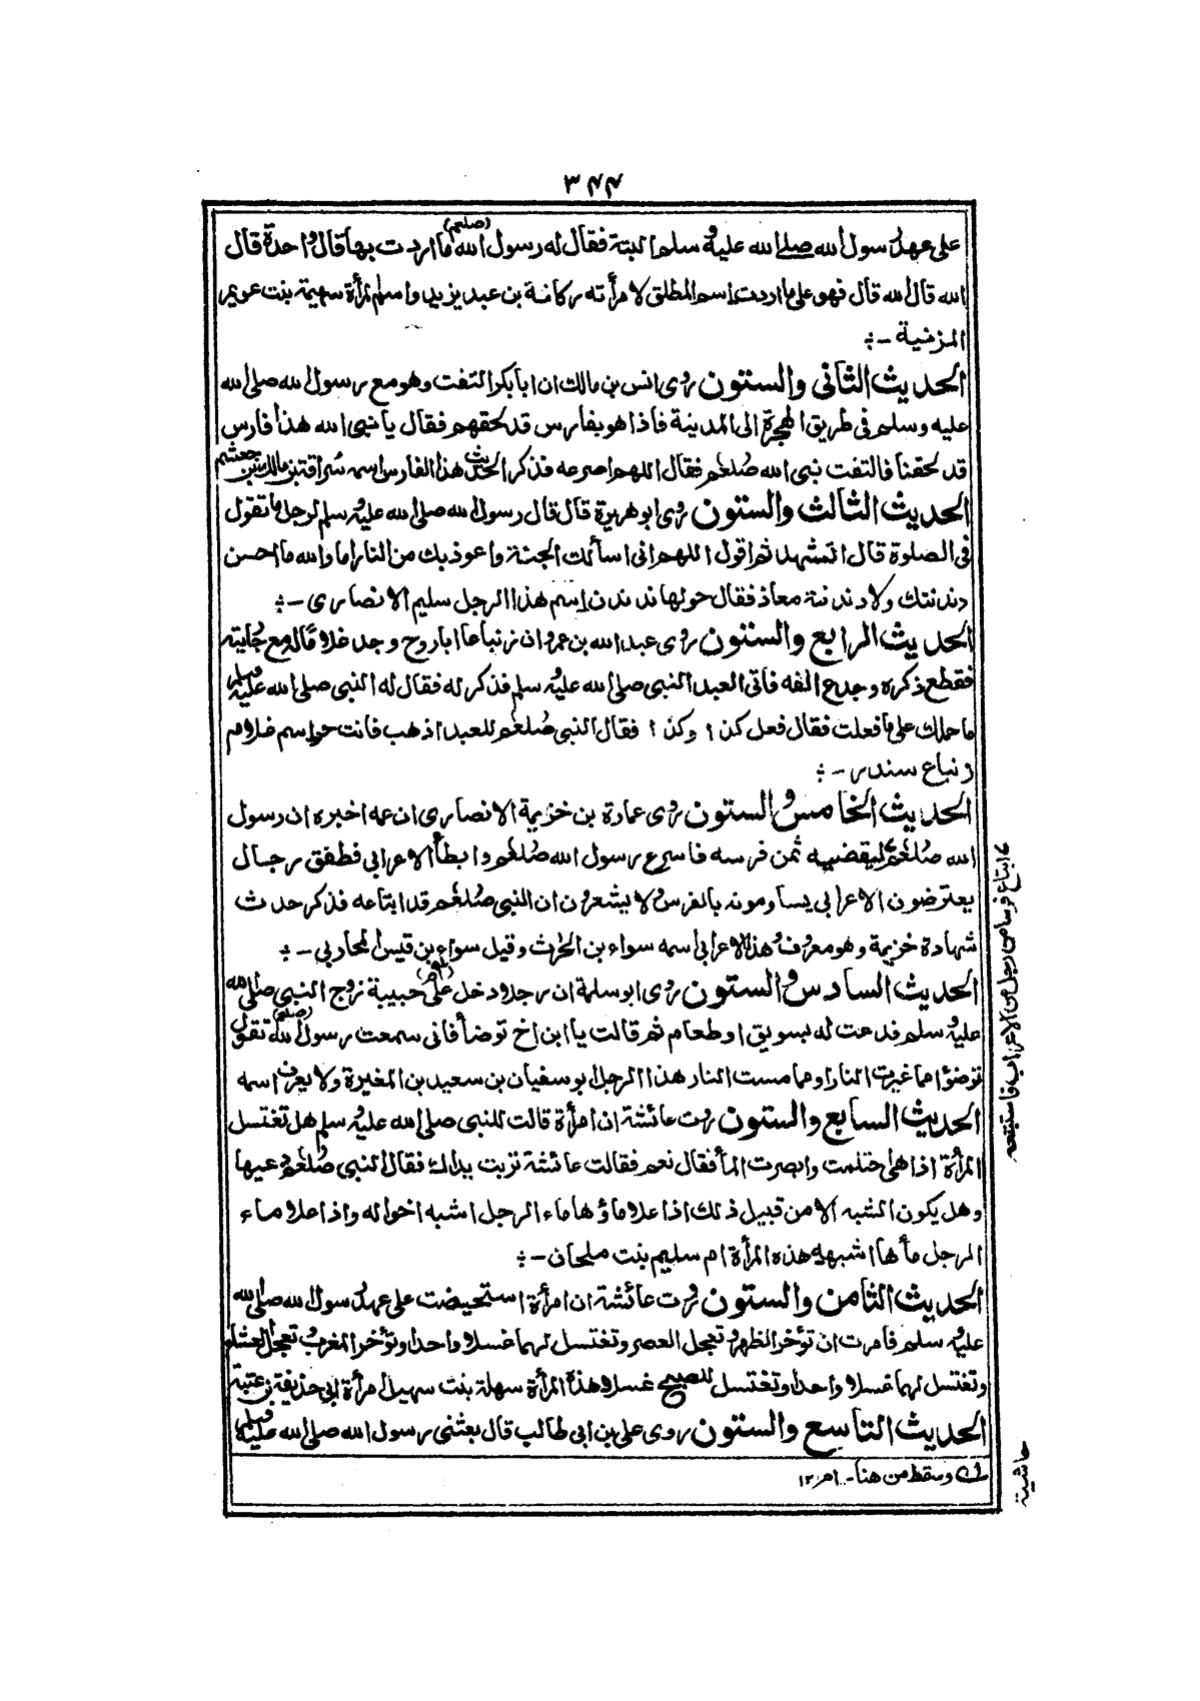 ٣٤٤
على عهد رسول الله صلى الله عليه وسلم البتة فقال له رسول الله (صلعم) ما اردت بها قال واحدة قال
الله قال الله قال فهو على ما اردت اسم المطلق لامرأته ركانة بن عبد يزيد واسم المرأة سهيمة بنت عويمر
المزنية -:
الحديث الثانى والستون روى انس بن مالك ان ابا بكر التفت وهو مع رسول الله صلى الله
عليه وسلم فى طريق الهجرة الى المدينة فاذا هو بفارس قد لحقهم فقال يا نبى الله هذا فارس
قد لحقنا فالتفت نبى الله صلعم فقال اللهم اصرعه فذكر الحديث هذا الفارس اسمه سراقة بن مالك بن جعشم
الحديث الثالث والستون روى ابو هريرة قال قال رسول الله صلى الله عليه وسلم لرجل ما تقول
فى الصلوة قال اتشهد ثم اقول اللهم انى اسألك الجنة واعوذ بك من النار اما والله ما احسن
دندنتك ولا دندنة معاذ فقال حولها ندندن اسم هذا الرجل سليم الانصارى -:
الحديث الرابع والستون روى عبد الله بن عمرو ان زنباعا ابا روح وجد غلاما له مع جاريته
فقطع ذكره وجدع انفه فاتى العبد النبى صلى الله عليه وسلم فذكر له فقال له النبى صلى الله عليه وسلم
ما حملك على ما فعلت فقال فعل كذا وكذا فقال النبى صلعم للعبد اذهب فانت حر اسم غلام
زنباع سندر -:
الحديث الخامس والستون روى عمارة بن خزيمة الانصارى ان عمه اخبره ان رسول
الله صلعم ليقضيه ثمن فرسه فاسرع رسول الله صلعم وابطأ الاعرابى فطفق رجال
يعترضون الاعرابى يساومونه بالفرس ولا يشعرون ان النبى صلعم قد ابتاعه فذكر حدث
شهادة خزيمة وهو معروف وهذا الاعرابى اسمه سواء بن الحرث وقيل سواء بن قيس المحاربى -:
الحديث السادس والستون روى ابو سلمة ان رجلا دخل على (ام) حبيبة زوج النبى صلى الله
عليه وسلم فدعت له بسويق او طعام ثم قالت يا ابن اخ توضأ فانى سمعت رسول الله (صلعم) تقول
توضؤا مما غيرت النار او مما مست النار هذا الرجل ابو سفيان بن سعيد بن المغيرة ولا يعرف اسمه
الحديث السابع والستون روت عائشة ان امرأة قالت للنبى صلى الله عليه وسلم هل تغتسل
المرأة اذا هى احتلمت وابصرت الماء فقال نعم فقالت عائشة تربت يداك فقال النبى صلعم دعيها
وهل يكون الشبه الا من قبيل ذلك اذا علا ماؤها ماء الرجل اشبه اخواله واذا علا ماء
الرجل مأها اشبهه هذه المرأة ام سليم بنت ملحان -:
الحديث الثامن والستون روت عائشة ان امرأة استحيضت على عهد رسول الله صلى الله
عليه وسلم فامرت ان تؤخر الظهر وتعجل العصر وتغتسل لهما غسلا واحدا وتؤخر المغرب وتعجل العشاء
وتغتسل لهما غسلا واحدا وتغتسل للصبح غسلا وهذه المرأة سهلة بنت سهيل امرأة ابى حذيفة بن عتبة
الحديث التاسع والستون روى على بن ابى طالب قال بعثنى رسول الله صلى الله عليه وسلم
(١) وسقط من هنا - ام ١٢
ابتاع فرسا من رجل من الاعراب فاستتبعه
حاشية